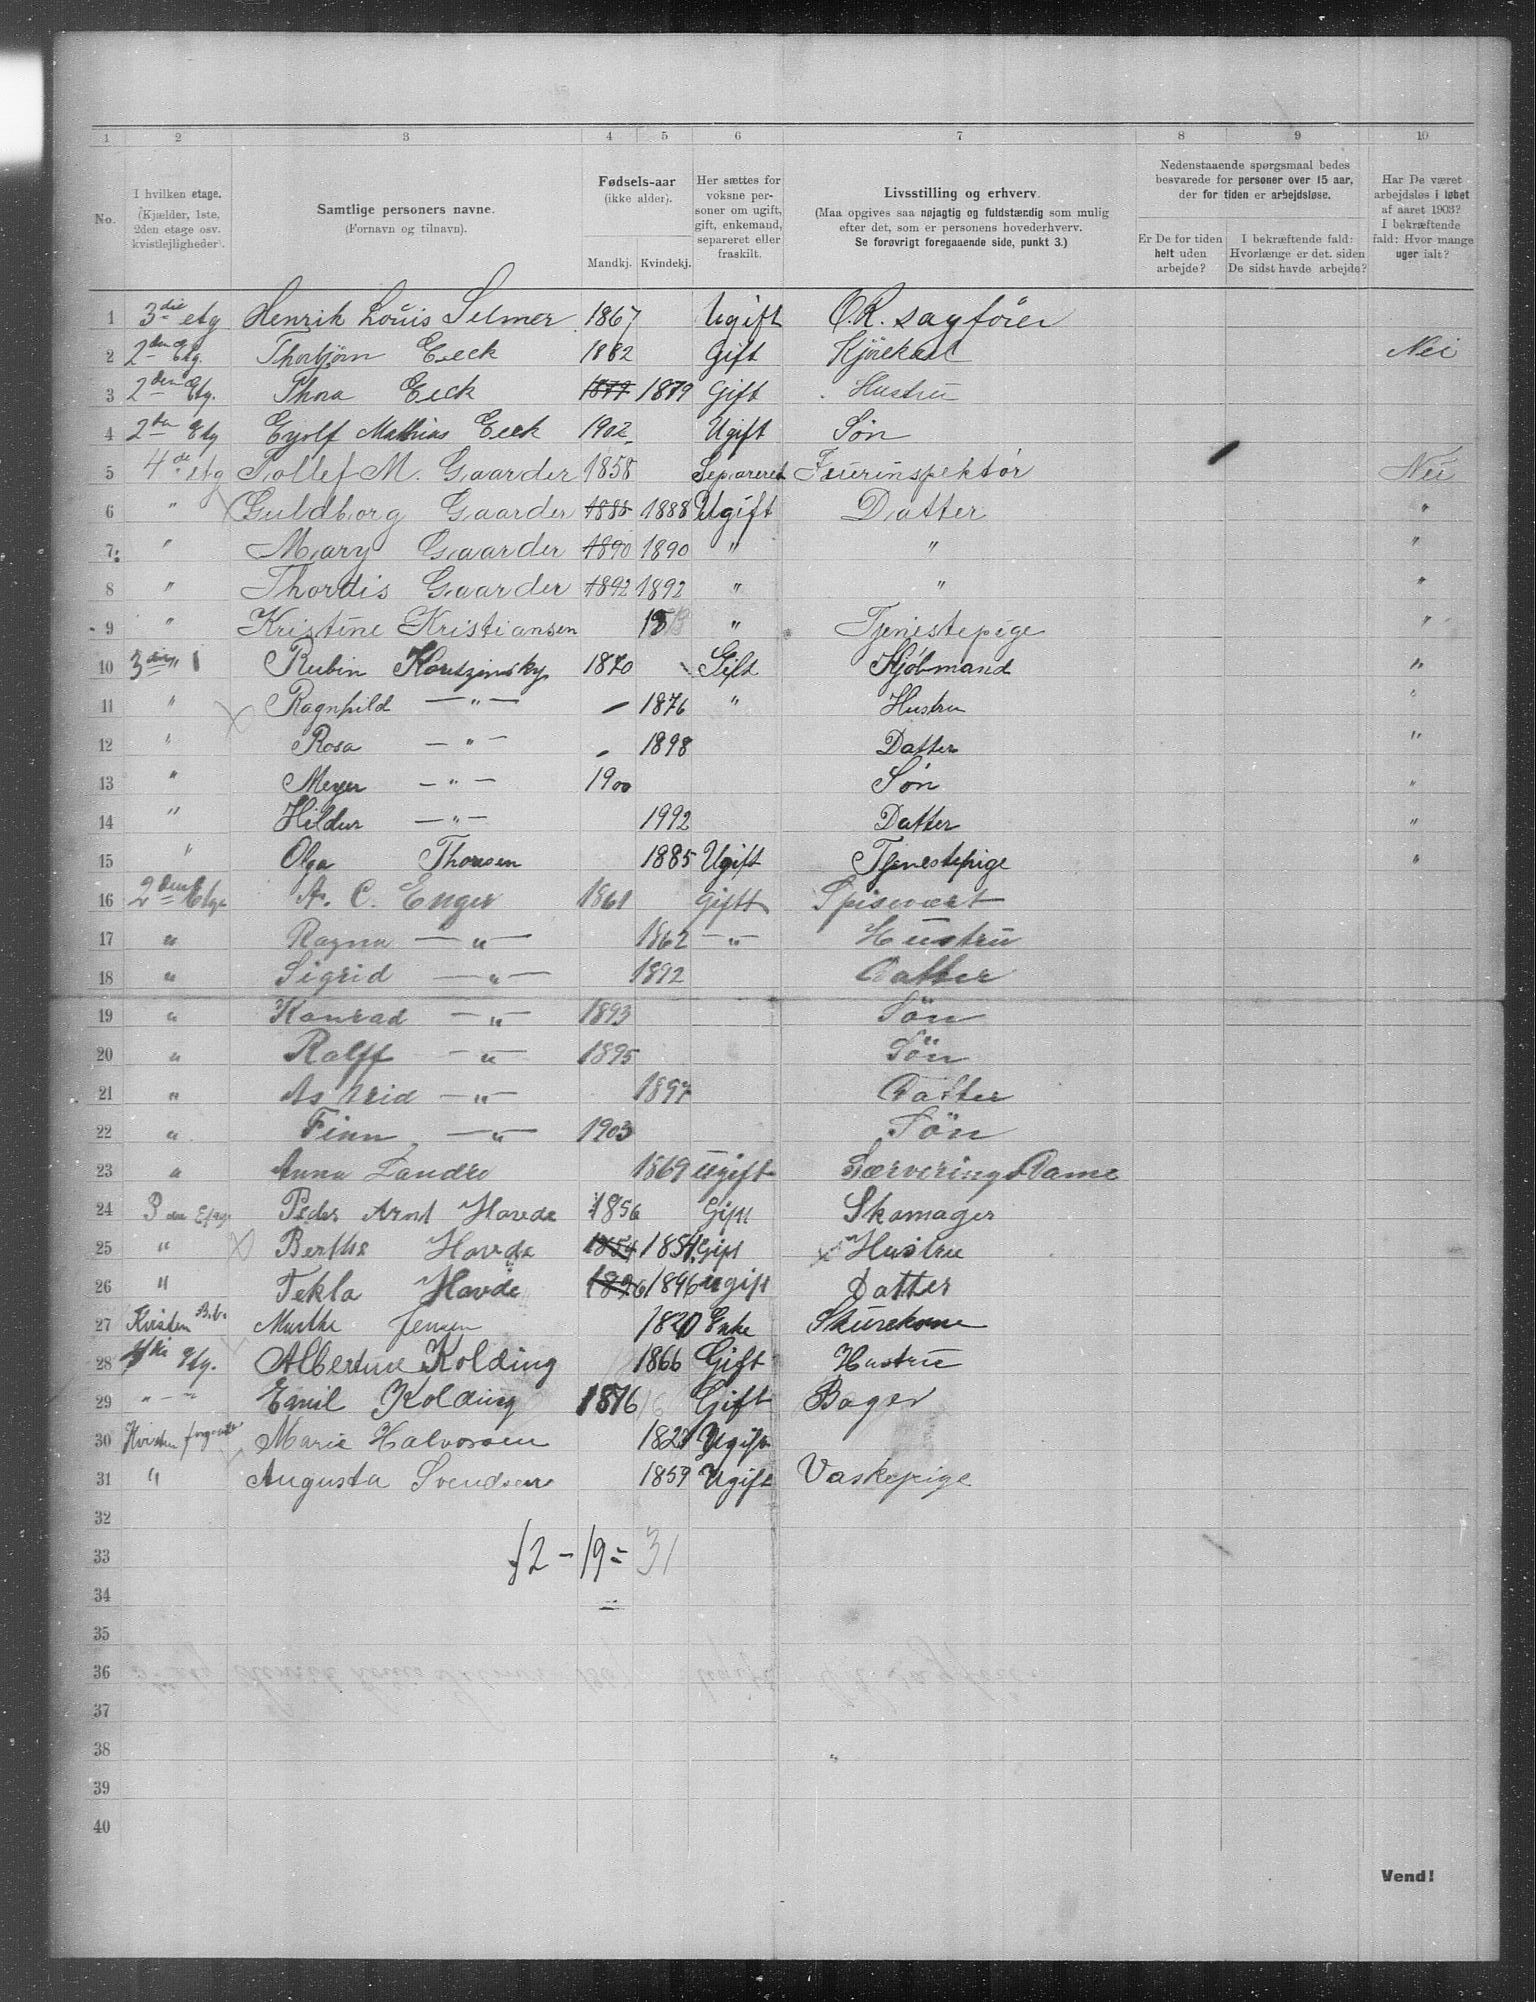 1 2 3 4 5 6 7 8 9 10
No.
I hvilken etage.
(Kjælder, 1ste,
2den etage osv.
kvistlejligheder).
Samtlige personers navne.
(Fornavn og tilnavn).
Fødsels-aar
(ikke alder).
Mandkj. Kvindekj.
Her sættes for
voksne per-
soner om ugift,
gift, enkemand,
separeret eller
fraskilt.
Livsstilling og erhverv.
(Maa opgives saa nøjagtig og fuldstændig som mulig
efter det, som er personens hovederhverv.
Se forøvrigt foregaaende side, punkt 3.)
Nedenstaaende spørgsmaal bedes
besvarede for personer over 15 aar,
der for tiden er arbejdsløse.
Er De for tiden
helt uden
arbejde?
I bekræftende fald:
Hvorlænge er det. siden
De sidst havde arbejde?
Har De været
arbejdsløs i løbet
af aaret 1903?
I bekræftende
fald: Hvor mange
uger ialt?
1 3die etg Henrik Louis Selmer 1867 Ugift O.R. sagfører
2 2den Etg. Thorbjørn Eeck 1882 Gift Kjørekarl Nei
3 2den Etg. Thora Eeck 1879 1879 Gift Hustru
4 2den Etg Eyolf Mathias Eeck 1902 Ugift Søn
5 4de etg Tollef M. Gaarder 1858 Separeret Fuurinspektør Nei
6 " Guldborg Gaarder 1888 1888 Ugift Datter "
7 " Mary Gaarder 1890 1890 " " "
8 " Thordis Gaarder 1892 1892 " " "
9 " Kristine Kristiansen " Tjenestepige "
10 3die " Rubin 1870 Gift Kjøbmand "
11 " Ragnhild — " — 1876 " Hustru "
12 " Rosa — " — 1898 Datter "
13 " Meyer — " — 1900 Søn "
14 " Hildur — " — 1992 Datter "
15 " Olga Thorsen 1885 Ugift Tjenestepige "
16 2den Etge A. C. Enger 1861 Giftt Spisevært
17 " Ragna — " — 1862 — " — Hustru
18 " Sigrid — " — 1892 Datter
19 " Konrad — " — 1893 Søn
20 " Ralff — " — 1895 Søn
21 " Astrid — " — 1897 Datter
22 " Finn — " — 1903 Søn
23 " Anna Landro 1869 Ugift Særverings Dame
24 3 die Etag Peder Arnt Havde 1856 Gift Skomager
25 " Berthe Havde 1854 1854 Gift Hustru
26 " Tekla Havde 1896 1896 ugift Datter
27 Kvisten Marthe Jensen 1820 Enke Skurekone
28 4de Etg. Albertine Kolding 1866 Gift Hustru
29 " — " Emil Kolding 1876 Gift Bager
30 Kvisten Marie Halvorsen 1823 Ugift
31 " Augusta Svendsen 1859 Ugift Vaskepige
32
33 12 – 19 = 31
34
35
36
37
38
39
40
Vend!